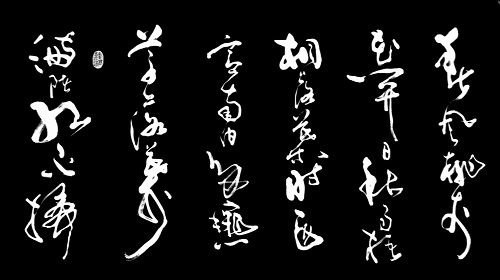 春風桃李
花開日秋雨梧
桐落葉時西
宮南内多秋
草落葉
滿階紅不掃